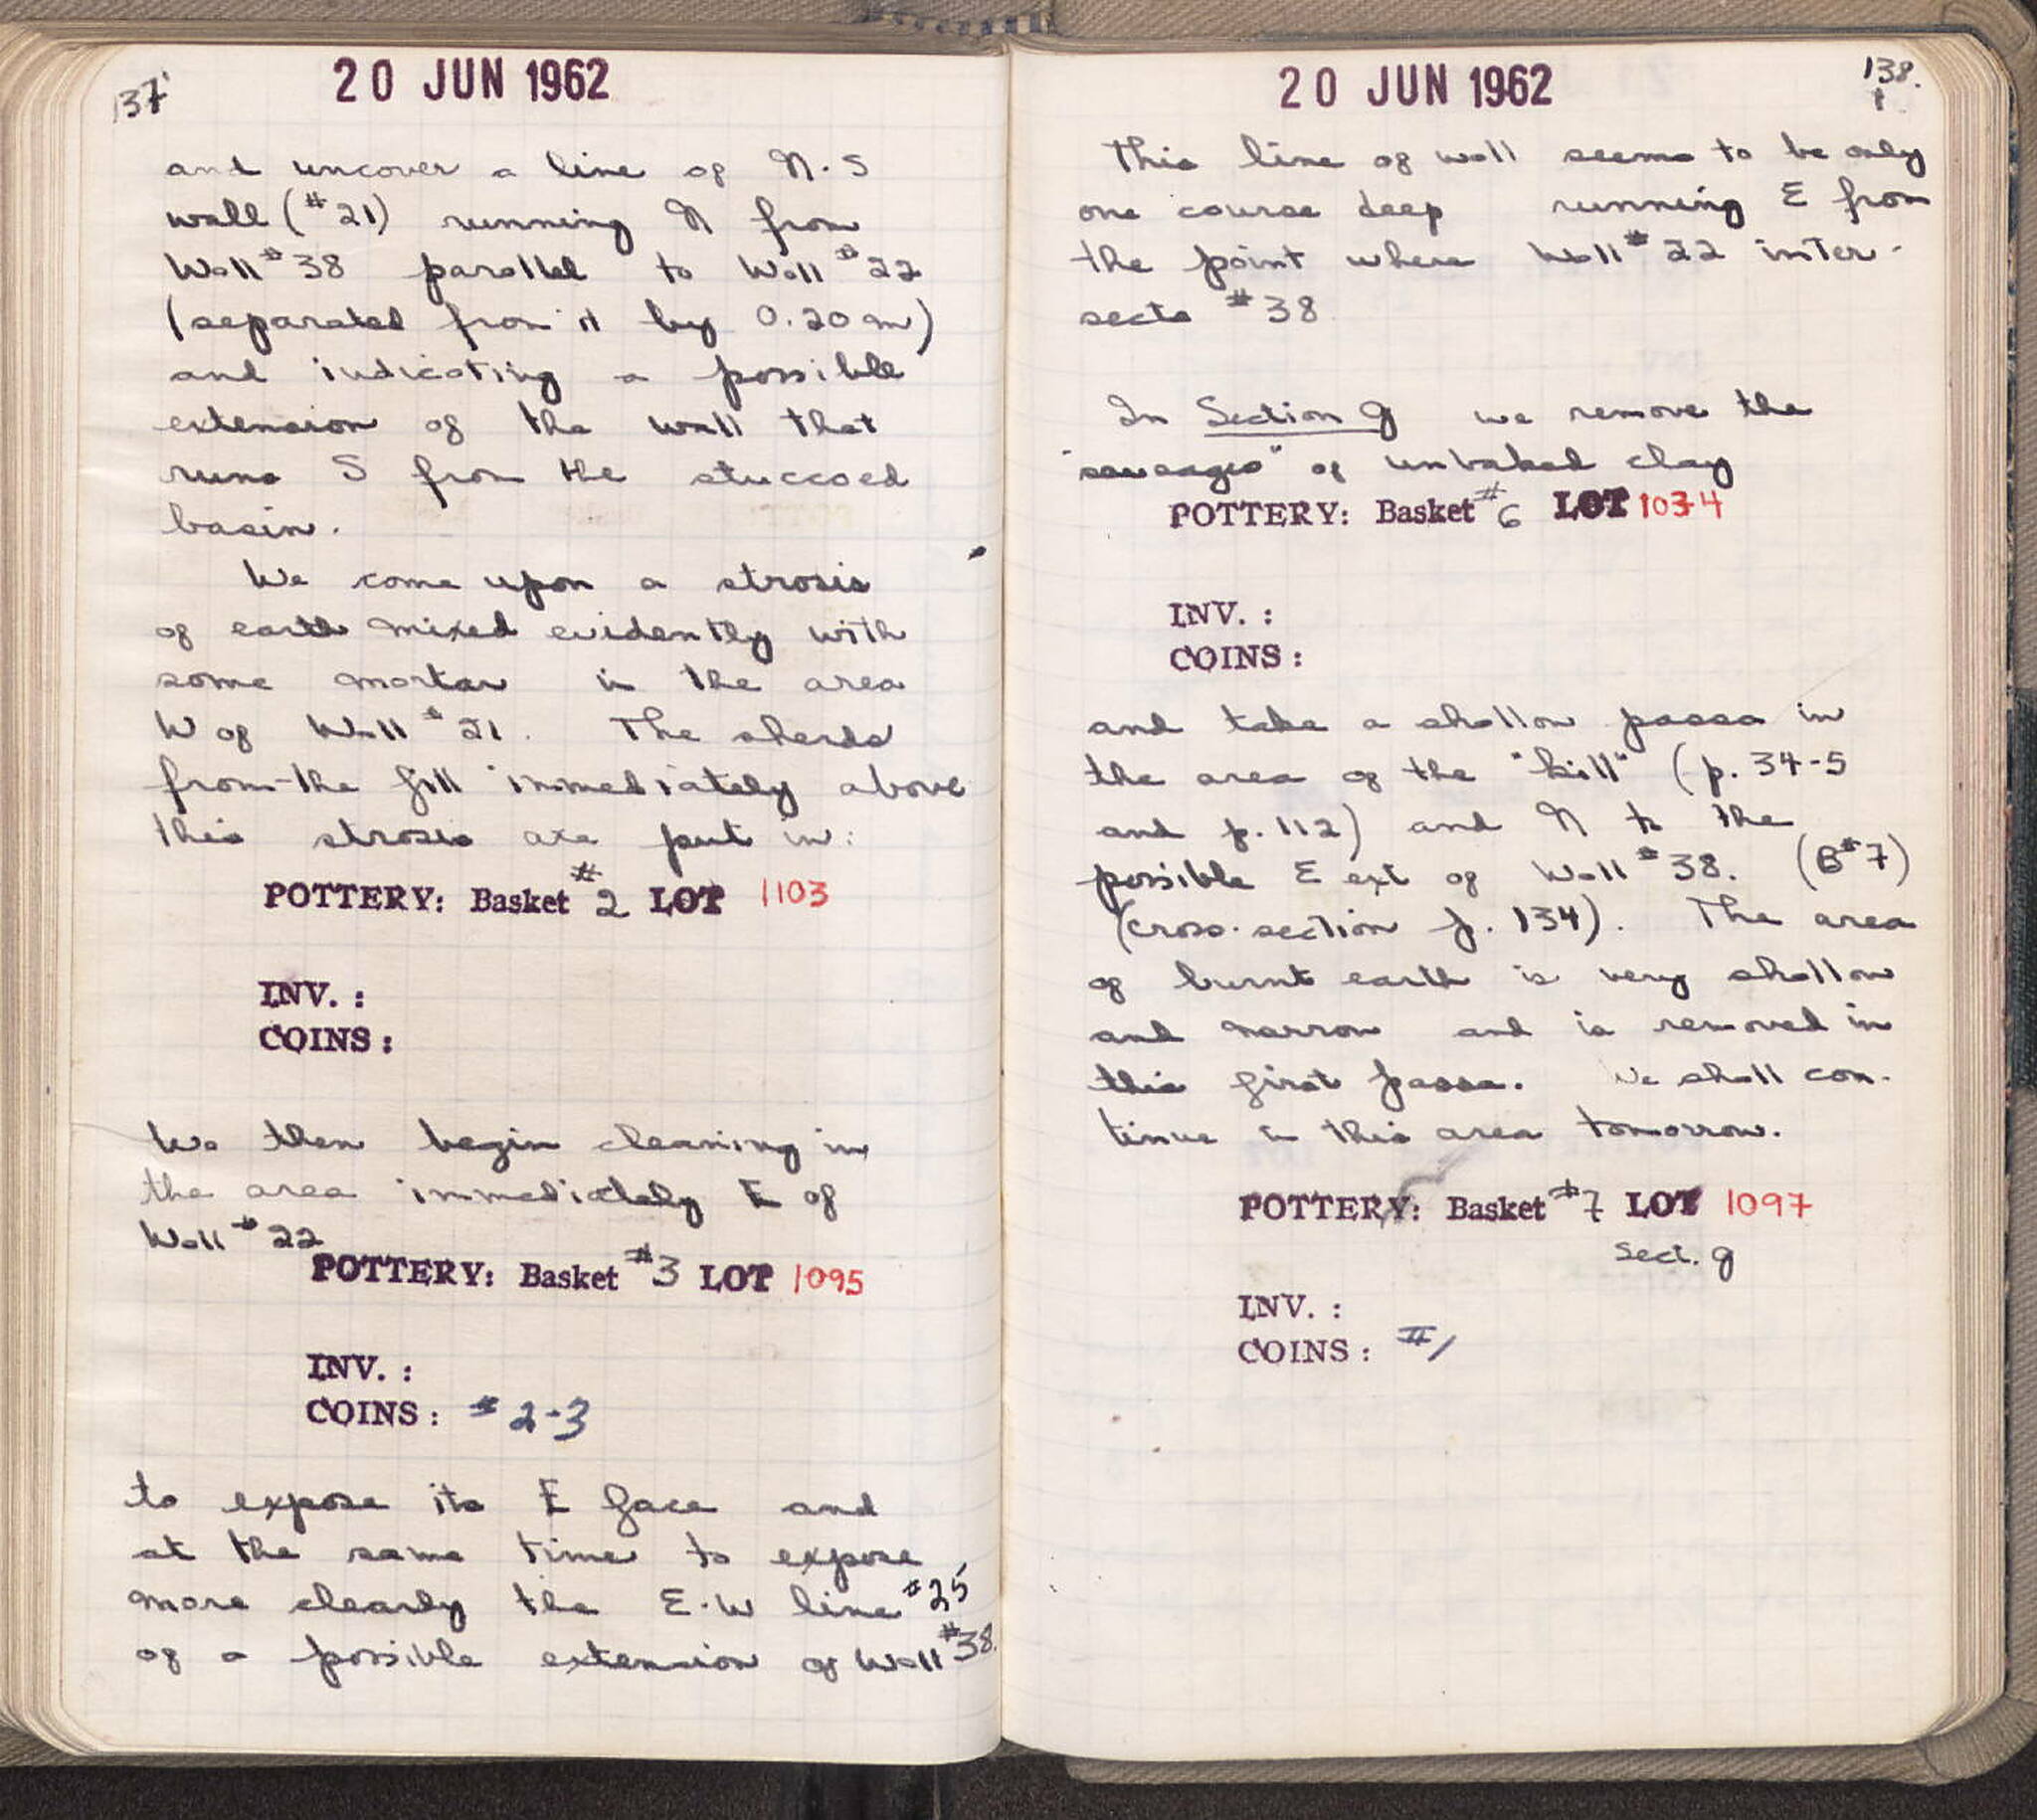 137
20 JUN 1962
and uncover a line of N-S
wall (#21) running N from
Wall #38 parallel to Wall #22
(separated from it by 0.20 m)
and indicating a possible
extension of the wall that
runs S from the stuccoed
basin.
We come upon a strosis
of earth mixed evidently with
some mortar in the area
W of Wall #21. The sherds
from the fill immediately above
this strosis are put in:
POTTERY: Basket #2 LOT 1103
INV. :
COINS :
We then begin cleaning in
the area immediately E of
Wall #22
POTTERY: Basket #3 LOT 1095
INV. :
COINS : #2-3
to expose its E face and
at the same time to expose
more clearly the E-W line #25
of a possible extension of Wall #38.
138.
20 JUN 1962
This line of wall seems to be only
one course deep running E from
the point where Wall #22 inter-
sects #38
In Section g we remove the
"sausages" of unbaked clay
POTTERY: Basket #6 LOT 1034
INV. :
COINS :
and take a shallow passa in
the area of the "kill" (p. 34-5
and p. 112) and N to the
possible E ext of Wall #38. (B#7)
(cross-section p. 134). The area
of burnt earth is very shallow
and narrow and is removed in
this first passa. We shall con-
tinue in this area tomorrow.
POTTERY: Basket #7 LOT 1097
Sect. g
INV. :
COINS : #1